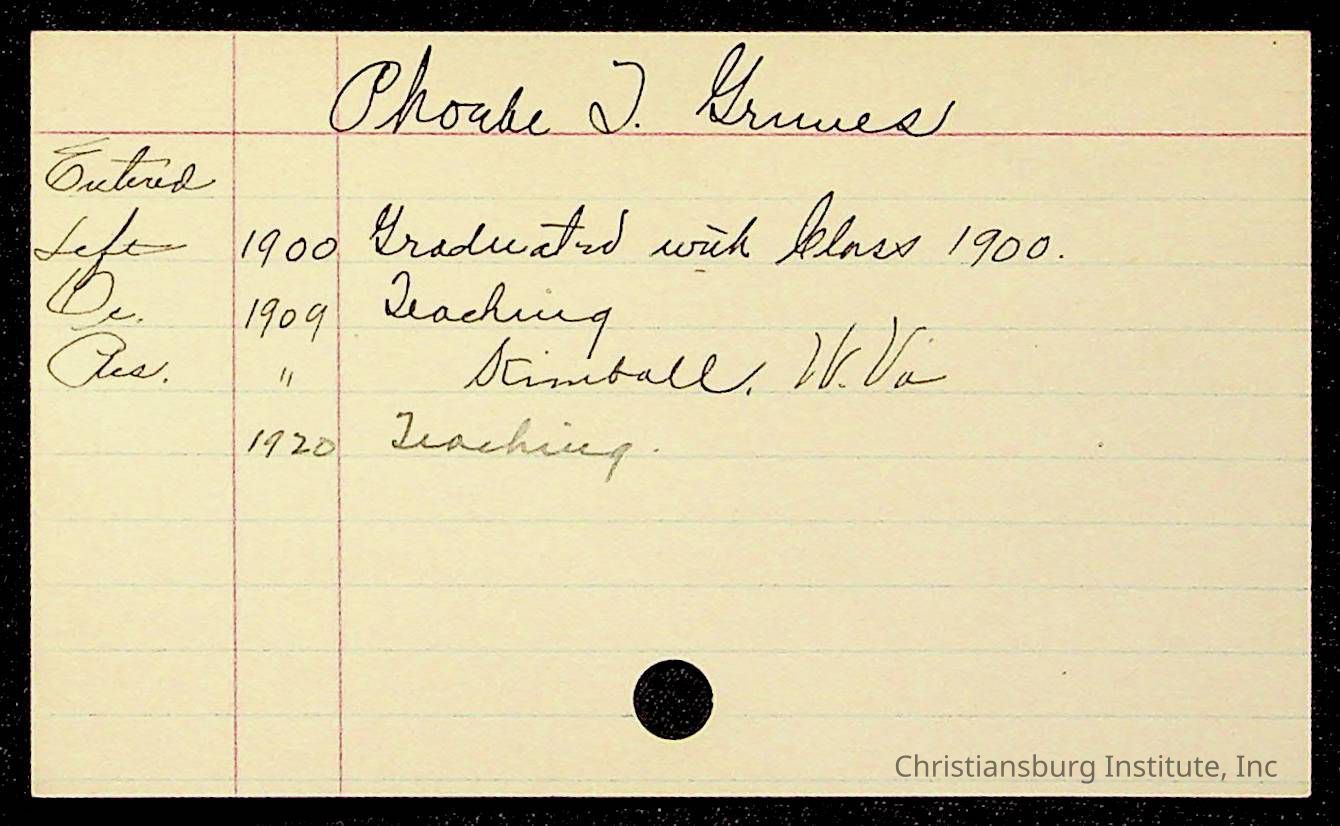 Phoebe T. Grimes
Entered
Left 1900 Graduated with Class 1900.
Oc. 1909 Teaching
Res. " Kimball, W. Va
1920 Teaching.
Christiansburg Institute, Inc